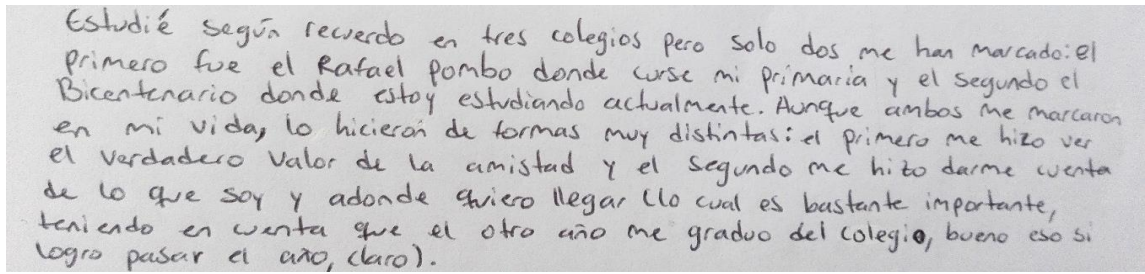 Estudié según recuerdo en tres colegios pero solo dos me han marcado: el
primero fue el Rafael Pombo donde curse mi primaria y el segundo el
Bicentenario donde estoy estudiando actualmente. Aunque ambos me marcaron
en mi vida, lo hicierón de formas muy distintas: el primero me hizo ver
el verdadero valor de la amistad y el segundo me hizo darme cuenta
de lo que soy y adonde quiero llegar (lo cual es bastante importante,
teniendo en cuenta que el otro año me graduo del colegio, bueno eso si
logro pasar el año, claro).